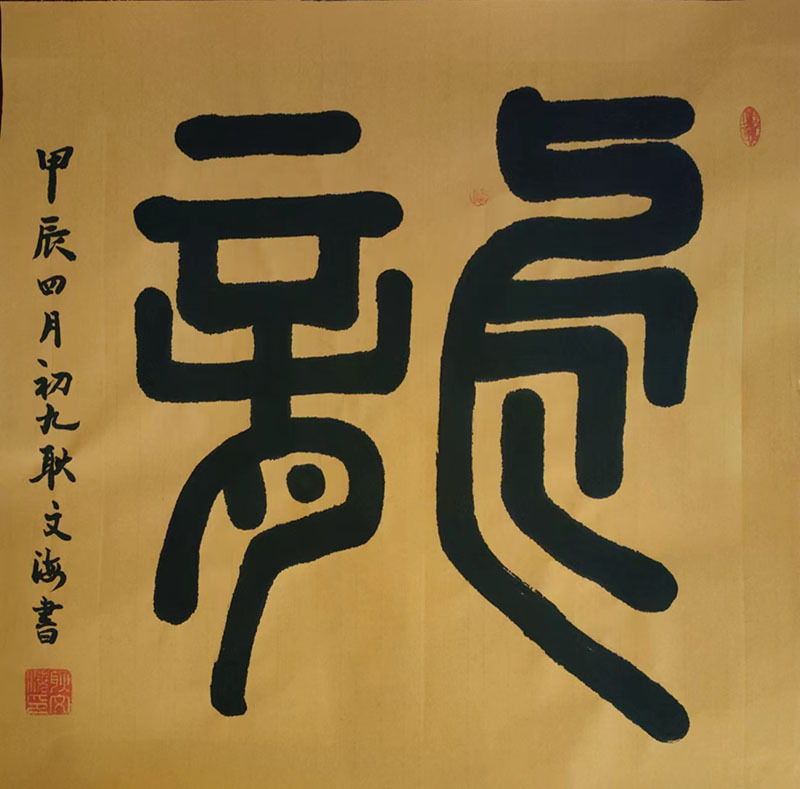 龍
甲辰四月初九耿文海書